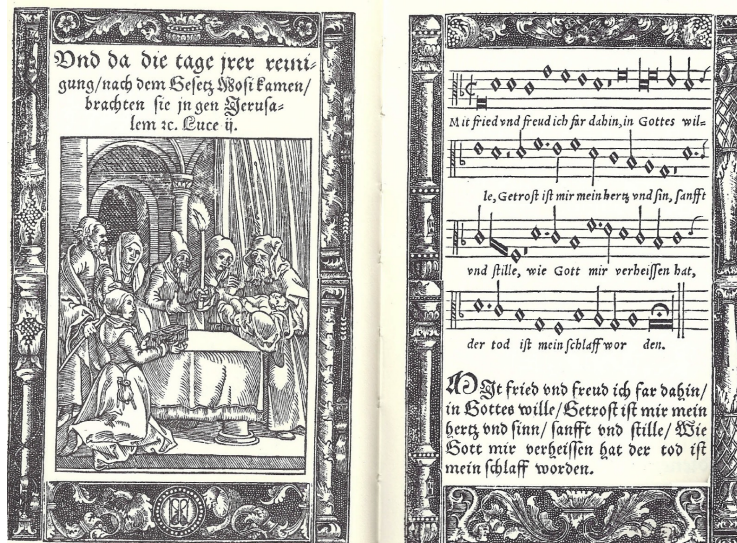 Vnd da die tage jrer reini⸗
gung/nach dem Gesetz Mosi kamen/
brachten sie jn gen Jerusa⸗
lem ꝛc. Luce ij.
Mit fried vnd freud ich far dahin, in Gottes wil⸗
le, Getrost ist mir mein hertz vnd sin, sanfft
vnd stille, wie Gott mir verheissen hat,
der tod ist mein schlaff wor den.
MIt fried vnd freud ich far dahin/
in Gottes wille/ Getrost ist mir mein
hertz vnd sinn/ sanfft vnd stille/ Wie
Gott mir verheissen hat der tod ist
mein schlaff worden.